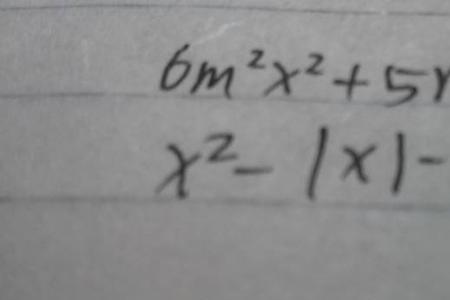 6m²x² + 5
x² - |x| -